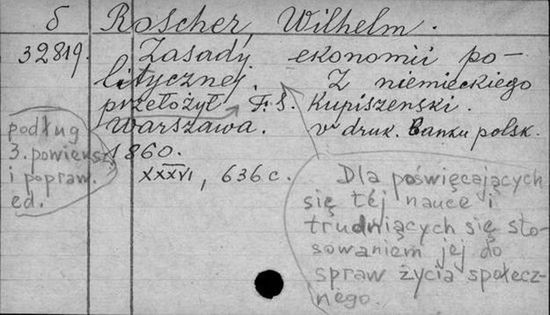 б Roscher, Wilhelm.
32819. Zasady ekonomii po-
litycznej. Z niemieckiego
przełożył F. S. Kupiszenski.
Warszawa. w druk. Banku polsk.
1860.
XXXVI, 636 c.
podług
3. powiększ.
i popraw.
ed.
Dla poświęcających
się téj nauce i
trudniących się sto-
sowaniem jej do
spraw życia społecz-
nego.